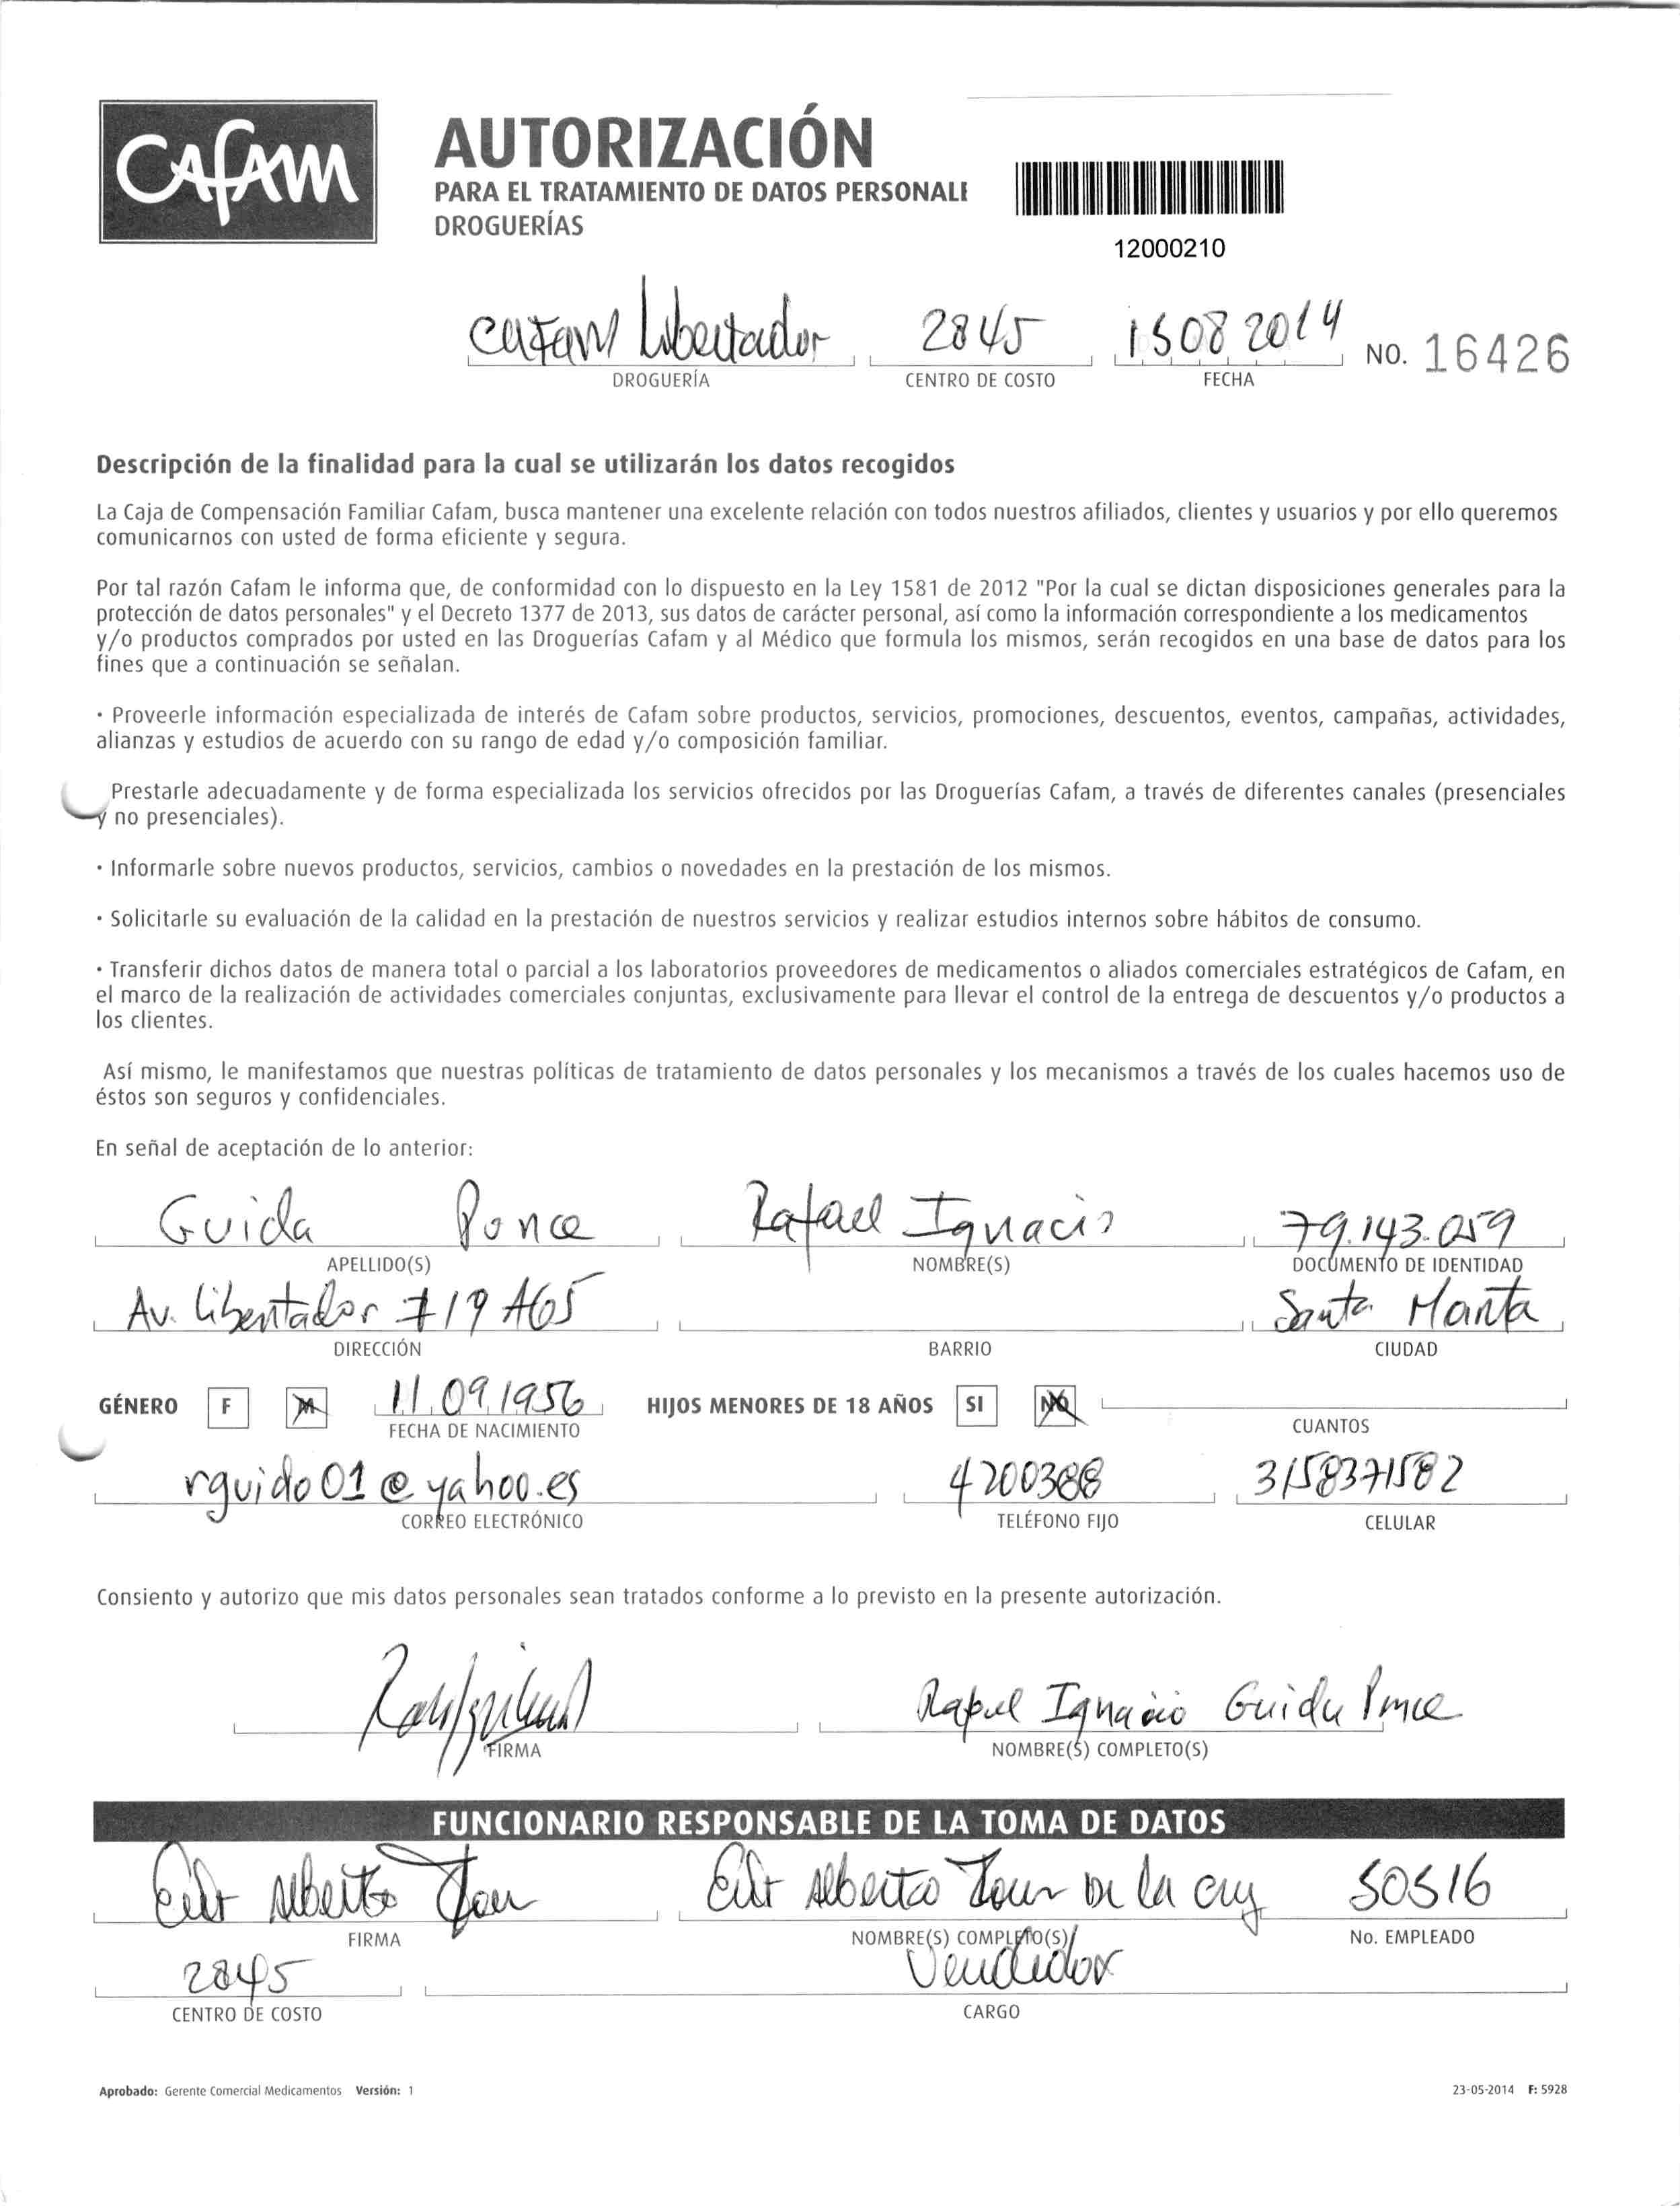 Cafam
AUTORIZACIÓN
PARA EL TRATAMIENTO DE DATOS PERSONALE
DROGUERÍAS
12000210
Cafam Libertador 2845 15 08 2014 NO. 16426
DROGUERÍA CENTRO DE COSTO FECHA
Descripción de la finalidad para la cual se utilizarán los datos recogidos
La Caja de Compensación Familiar Cafam, busca mantener una excelente relación con todos nuestros afiliados, clientes y usuarios y por ello queremos
comunicarnos con usted de forma eficiente y segura.
Por tal razón Cafam le informa que, de conformidad con lo dispuesto en la Ley 1581 de 2012 "Por la cual se dictan disposiciones generales para la
protección de datos personales" y el Decreto 1377 de 2013, sus datos de carácter personal, así como la información correspondiente a los medicamentos
y/o productos comprados por usted en las Droguerías Cafam y al Médico que formula los mismos, serán recogidos en una base de datos para los
fines que a continuación se señalan.
· Proveerle información especializada de interés de Cafam sobre productos, servicios, promociones, descuentos, eventos, campañas, actividades,
alianzas y estudios de acuerdo con su rango de edad y/o composición familiar.
Prestarle adecuadamente y de forma especializada los servicios ofrecidos por las Droguerías Cafam, a través de diferentes canales (presenciales
y no presenciales).
· Informarle sobre nuevos productos, servicios, cambios o novedades en la prestación de los mismos.
· Solicitarle su evaluación de la calidad en la prestación de nuestros servicios y realizar estudios internos sobre hábitos de consumo.
· Transferir dichos datos de manera total o parcial a los laboratorios proveedores de medicamentos o aliados comerciales estratégicos de Cafam, en
el marco de la realización de actividades comerciales conjuntas, exclusivamente para llevar el control de la entrega de descuentos y/o productos a
los clientes.
Así mismo, le manifestamos que nuestras políticas de tratamiento de datos personales y los mecanismos a través de los cuales hacemos uso de
éstos son seguros y confidenciales.
En señal de aceptación de lo anterior:
Guida Ponce Rafael Ignacio 79.143.059
APELLIDO(S) NOMBRE(S) DOCUMENTO DE IDENTIDAD
Av. Libertador # 19 A65 Santa Marta
DIRECCIÓN BARRIO CIUDAD
GÉNERO F M 11 09 1956 HIJOS MENORES DE 18 AÑOS SI NO
FECHA DE NACIMIENTO CUANTOS
rguido01@yahoo.es 4200388 3158371582
CORREO ELECTRÓNICO TELÉFONO FIJO CELULAR
Consiento y autorizo que mis datos personales sean tratados conforme a lo previsto en la presente autorización.
Rafael Ignacio Guida Ponce
FIRMA NOMBRE(S) COMPLETO(S)
FUNCIONARIO RESPONSABLE DE LA TOMA DE DATOS
Alberto Alberto De la 50516
FIRMA NOMBRE(S) COMPLETO(S) No. EMPLEADO
2845 Vendedor
CENTRO DE COSTO CARGO
Aprobado: Gerente Comercial Medicamentos Versión: 1 23-05-2014 F: 5928